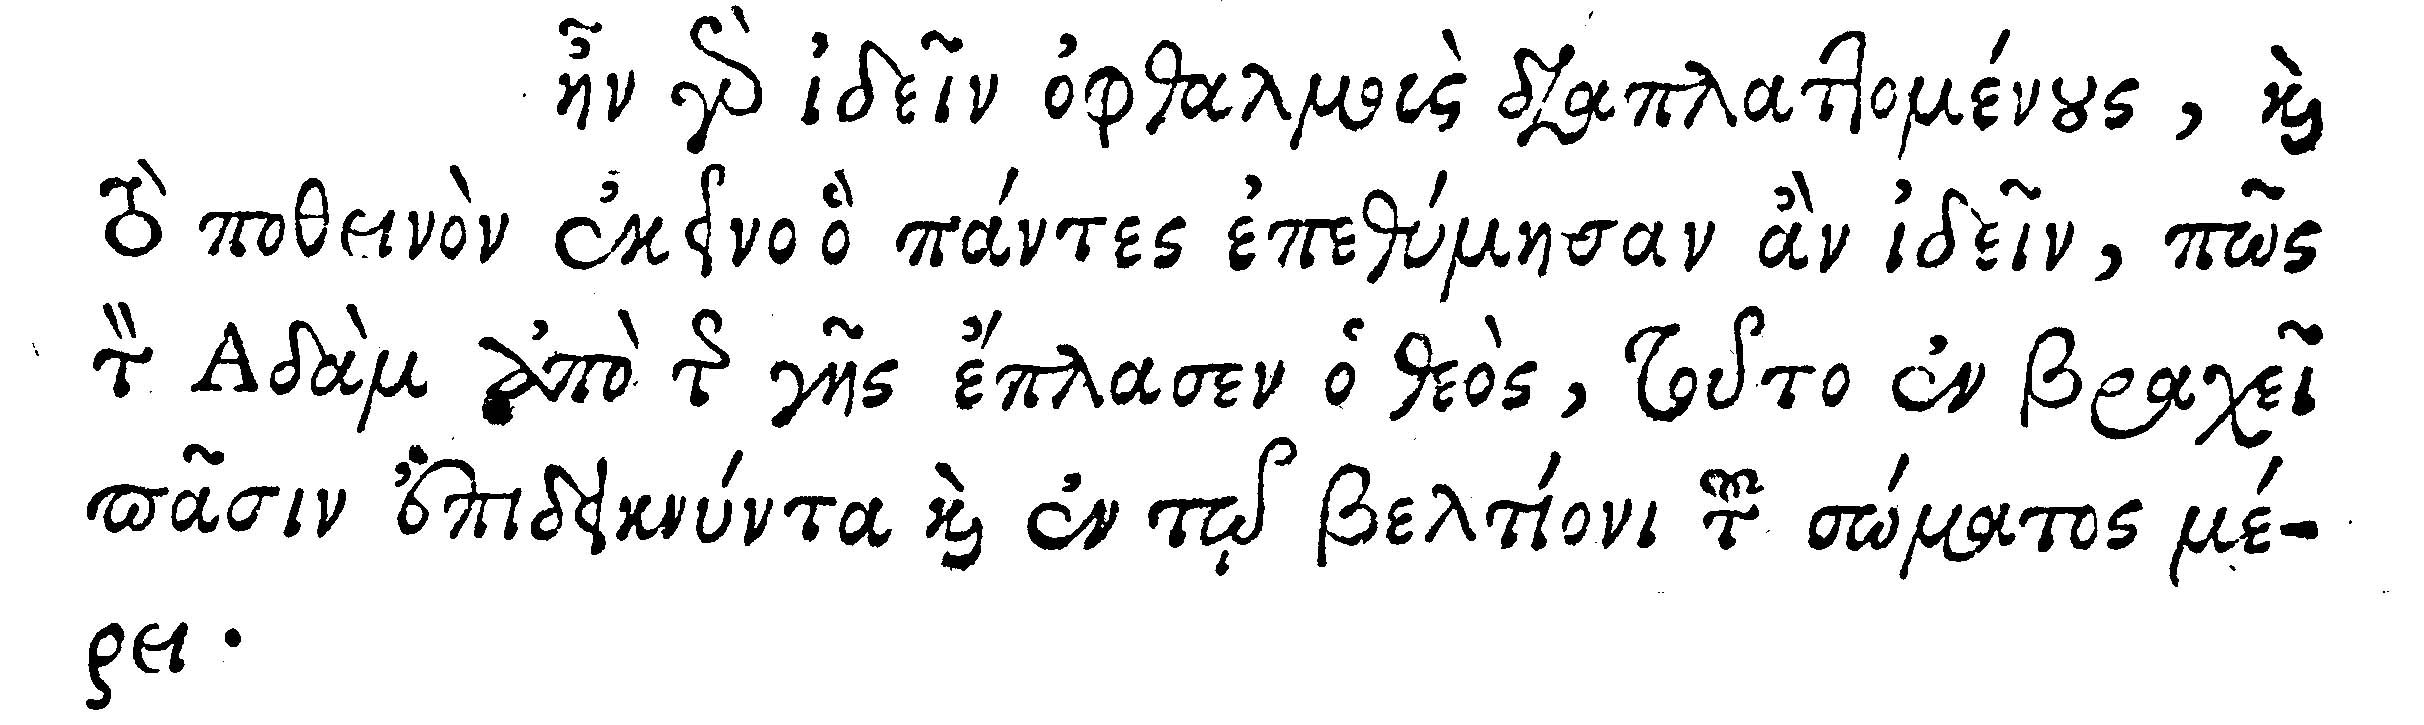 ἦν γὰρ ἰδεῖν ὀφθαλμοὺς διαπλαττομένους, καὶ
τὸ ποθεινὸν ἐκεῖνο ὃ πάντες ἐπεθύμησαν ἂν ἰδεῖν, πῶς
τὸν Αδὰμ ἀπὸ τῆς γῆς ἔπλασεν ὁ θεὸς, τοῦτο ἐν βραχεῖ
πᾶσιν ἐπιδεικνύντα καὶ ἐν τῷ βελτίονι τοῦ σώματος μέ-
ρει.